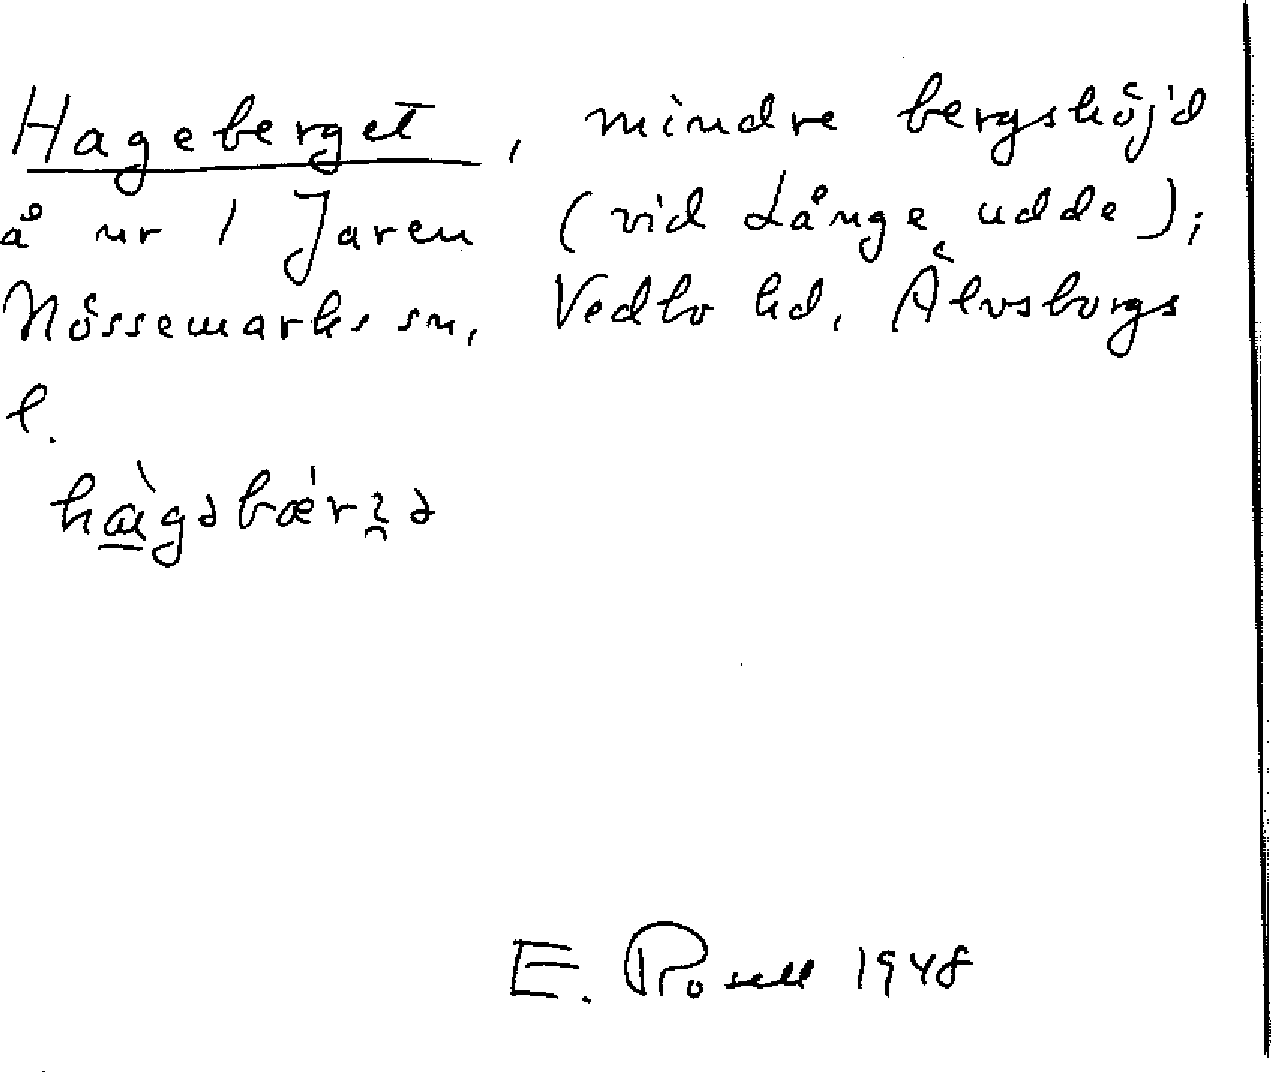 Hageberget, mindre bergshöjd
å nr 1 Jaren (vid Långe udde);
Nössemarks sn, Vedbo hd, Älvsborgs
l.
hὰgəbǽrʒə
E. Rosell 1948